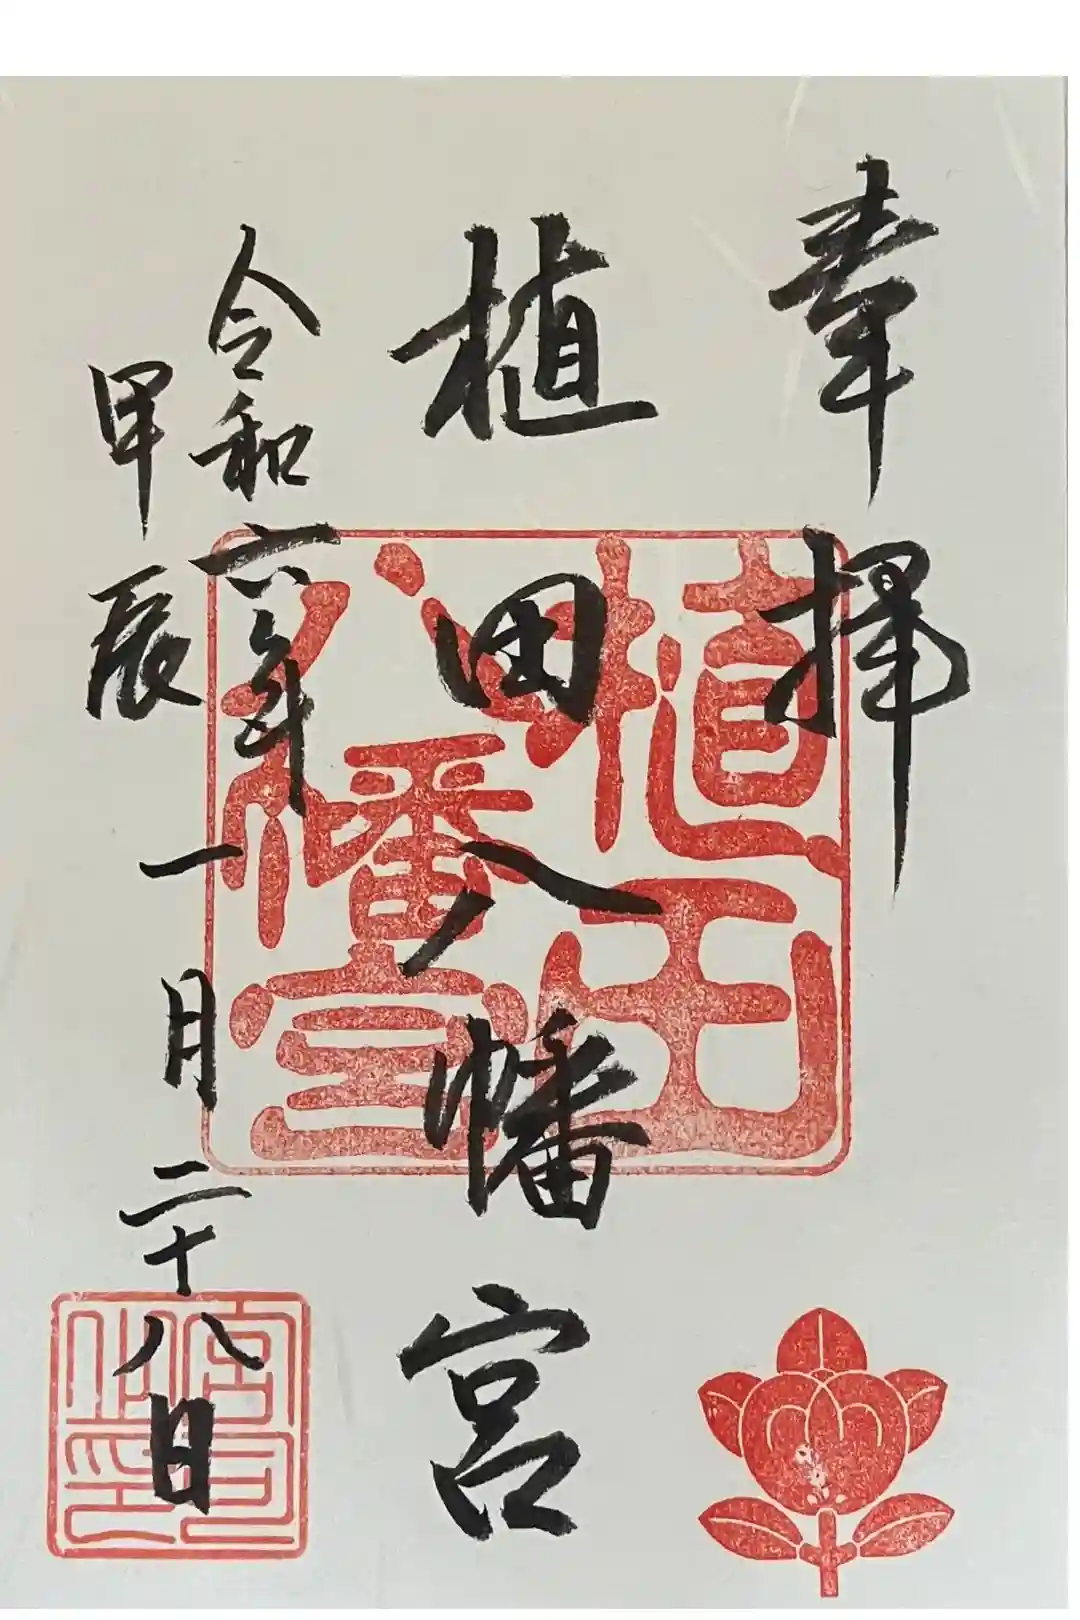 奉拝
植田八幡宮
令和六年
甲辰
一月二十八日
植田八幡宮
宮司之印